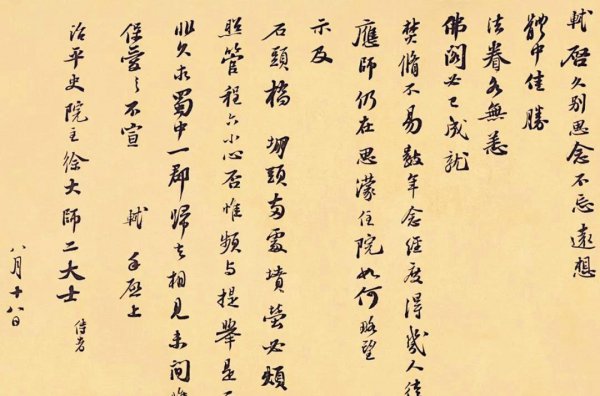 軾啓久别思念不忘遠想
體中佳勝
法眷各無恙
佛閣必已成就
焚脩不易數年念經度得幾人徒
應師仍在思濛住院如何略望
示及
石頭橋堋頭兩處墳塋必煩
照管程六小心否惟頻与提舉是
非久求蜀中一郡歸去相見未間
保愛之不宣 軾手啓上
治平史院主徐大師二大士 侍者
八月十八日